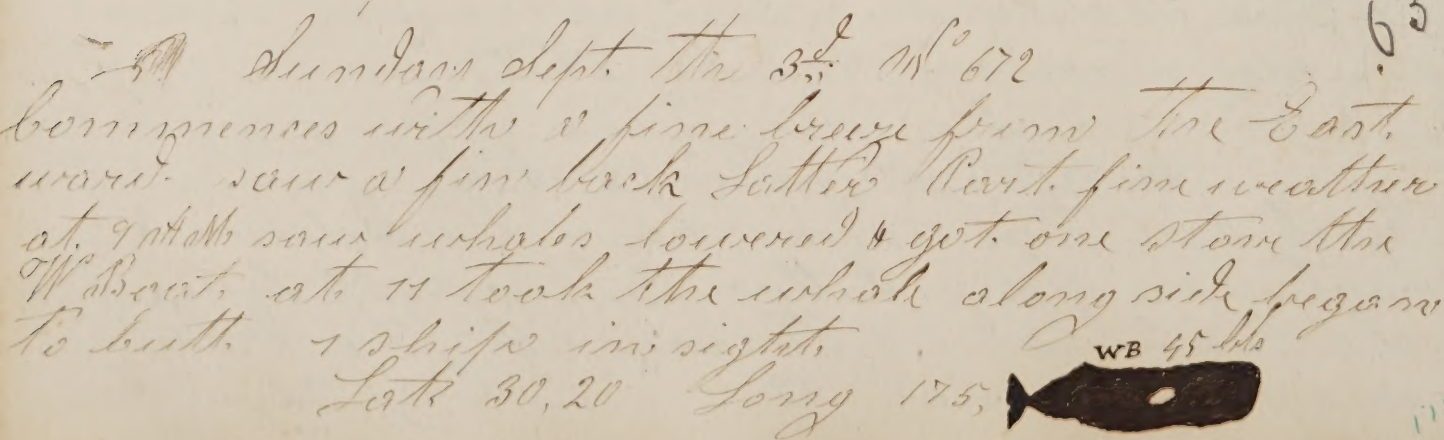 63
Sunday Sept. the 3d No 672
Commences with a fine breeze from the East
ward. saw a fin back Latter Part fine weather
at 9 AM saw whales lowered & got one stove the
W Boat. at 11 took the whale along side began
to cutt. 1 ship in sight.
WB 45 bls
Lat 30,20 Long 175,